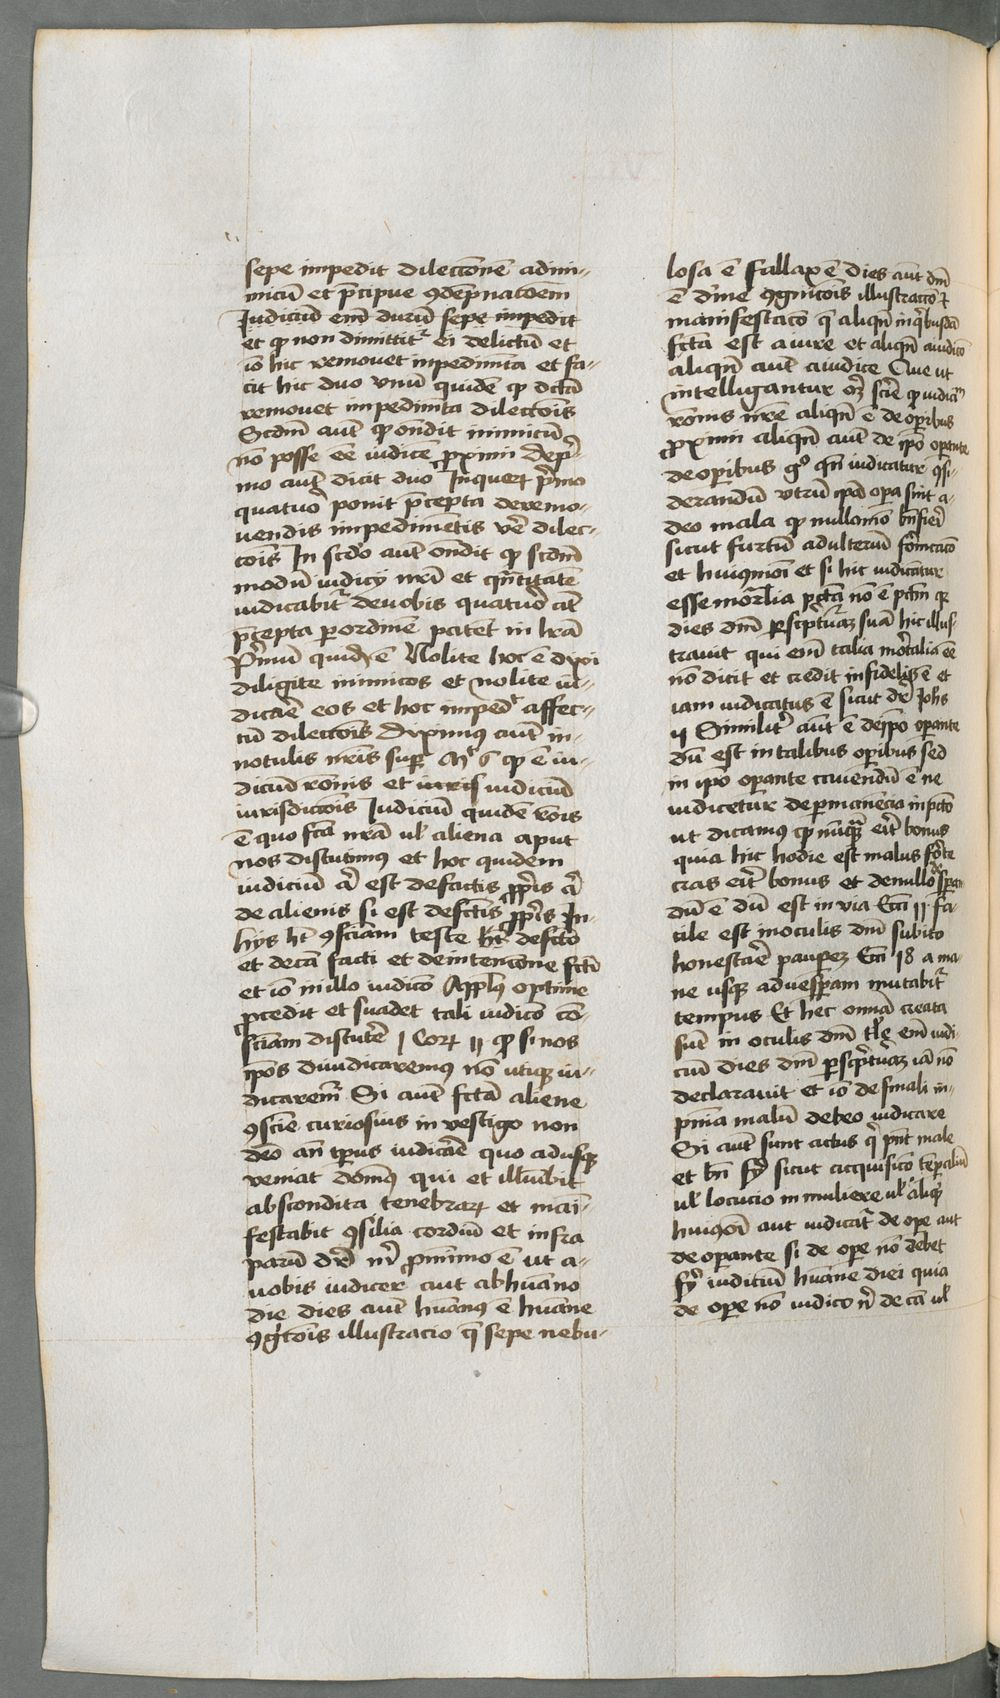 sepe impedit dilectōnē adini-
micū et p̄cipue ɔdēpnatōem
Judiciū em̄ durū sepe impedit
et qꝫ non dimittit᷑ ei delictū et
iō hic remouet inpedim̄ta et fa-
cit hic duo vnū quidē qꝫ dcā
remouet impedim̄ta dilectōis
Scdm̄ aut̄ qꝫ ondit inimicū
nō posse eē iudicē ꝓximi De p̄-
mo aut̄ dicit duo Jn quoꝝ p̄mo
quatuor ponit p̄cepta de remo-
uendis impedimētis v̄e dilec-
tōis Jn scdo aut̄ ondit qꝫ scdm̄
modū iudicij nr̄i et qn̄titatē
iudicabit᷑ de nobis quatuor aūt
p̄cepta ꝑ ordinē patēt in lr̄a
P̄mū quidē ē Nolite hoc ē dixi
diligite inimicos et nolite iu-
dicāe eos et hoc imped᷑ affec-
tū dilectōis Diximꝰ aut̄ in
notulis nr̄is suꝑ Mͭ 6 qꝫ ē iu-
diciū rōnis et iuris iudiciū
iurisdictōis Judiciū quidē rōis
ē quo fcā nr̄a ul̄ aliena aput
nos discutimꝰ et hoc quidem
iudiciū aͥ est de factis ꝓpͥis aͥ
de alienis si est de fctīs ꝓpͥis Jn
hijs ht̄ ɔsciam teste de fctō
et de cā facti et de intencione fctī
et iō in illo iudicō Aplūs optime
ꝓcedit et suadet tali iudicō cō-
sciam discutē J Corꝝ ij qꝫ si nos
ip̄os diiudicaremꝰ nō utiqꝫ iu-
dicarem᷑ Si aut̄ fctā aliene
ɔscie curiosius in vestigo non
deō an̄ tp̄us iudicāe quo adusqꝫ
veniat domꝰ qui et illūiabit
abscondita tenebraꝝ et mani-
festabit ɔsilia cordiū et infra
parū dr̄ mͥ ꝓ minimo ē ut a-
uobis iudicer aut ab huāno
die dies aut̄ huānꝰ ē huāne
ɔgitōis illustracio q̄ sepe nebu-
losa ē fallax ē Dies aut̄ dn̄i
ē diuīe ɔgnicōis illustracō ⁊
manifestacō q̄ aliqn̄ in qͥbusdā
fctā est a iure et aliqn̄ a iudicō
aliqn̄ aut̄ a iudice Que ut
intelligantur oꝫ scīe qꝫ iudicm̄
rōnis nr̄e aliqn̄ ē de oꝑibus
ꝓximi aliqn̄ aut̄ de ip̄o oꝑante
de oꝑibus gͦ qn̄ iudicatur ɔsi-
derandū vtrū ip̄a oꝑa sint a-
deo mala qꝫ nullomō bn̄ fieri
sicut furtū adulteriū fornicacō
et huiꝰmōi et si hic iudicātur
esse mortalia pctā nō ē pctm̄ qꝫ
dies dn̄i ꝑ scptūraꝫ suā hic illus-
trauit qui em̄ talia mortalia eē
nō dicit et credit infidelis ē et
iam iudicatus ē sicut dr̄ Johs
ij Similit᷑ aut̄ ē de ip̄o oꝑante
dū est in talibus oꝑibus sed
in ip̄o oꝑante cauendū ē ne
iudicetur de ꝑmanēcia in pctō
ut dicamꝰ qꝫ nūqꝫ erit bonus
quia hic hodie est malus forte
cras erit bonus et de nullo desꝑan-
dū ē dū est in via Ecci ij fa-
cile est in oculis dn̄i subito
honestaē pauꝑeꝫ Ecci 18 a ma-
ne usqꝫ ad uesꝑam mutabit᷑
tempus Et hec omnia creata
sūt in oculis dn̄i em̄ iudi-
ciū dies dn̄i ꝑ scptūraꝫ iā nō
declarauit et iō de finali in-
pn̄ia malū debeo iudicare
Si aut̄ sunt actus qͥ pn̄t male
et bn̄ fͥ sicut acquisicō tēꝑaliū
ul̄ locucio in muliere ul̄ aliqͥd
huiꝰmōi aut iudicat᷑ de oꝑe aut
de oꝑante si de oꝑe nō debet
fͥ iudiciū huāne diei quia
de oꝑe nō iudico nͥ de cā ul̄